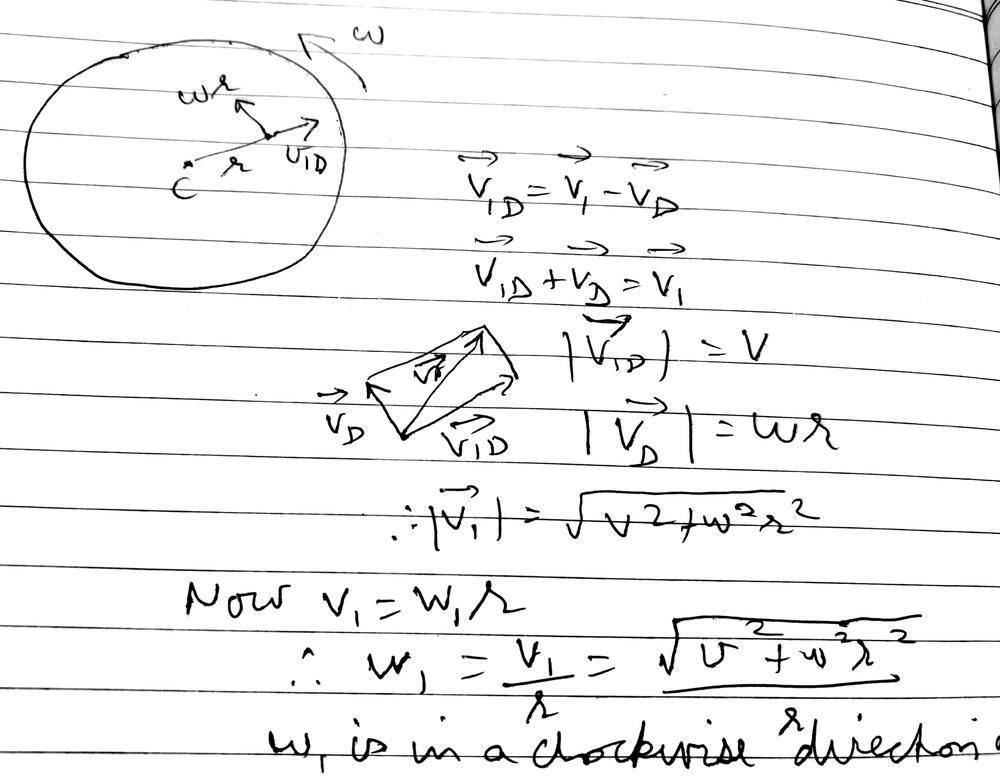 ω
ωr
V⃗₁D
r
C
V⃗₁D = V⃗₁ - V⃗D
V⃗₁D + V⃗D = V⃗₁
V⃗₁ |V⃗₁D| = V
V⃗D V⃗₁D |V⃗D| = ωr
∴ |V⃗₁| = √(V² + ω²r²)
Now V₁ = ω₁r
∴ ω₁ = V₁/r = √(V² + ω²r²)/r
ω₁ is in a clockwise direction